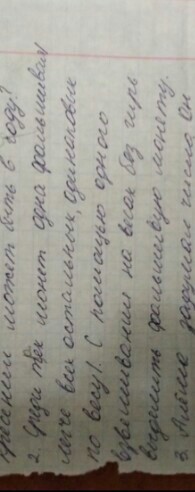 может быть в году?
2. Среди трёх монет одна фальшивая
легче всех остальных, одинаковых
по весу). С помощью одного
взвешивания на весах без гирь
выделить фальшивую монету.
3. задумал число. Он